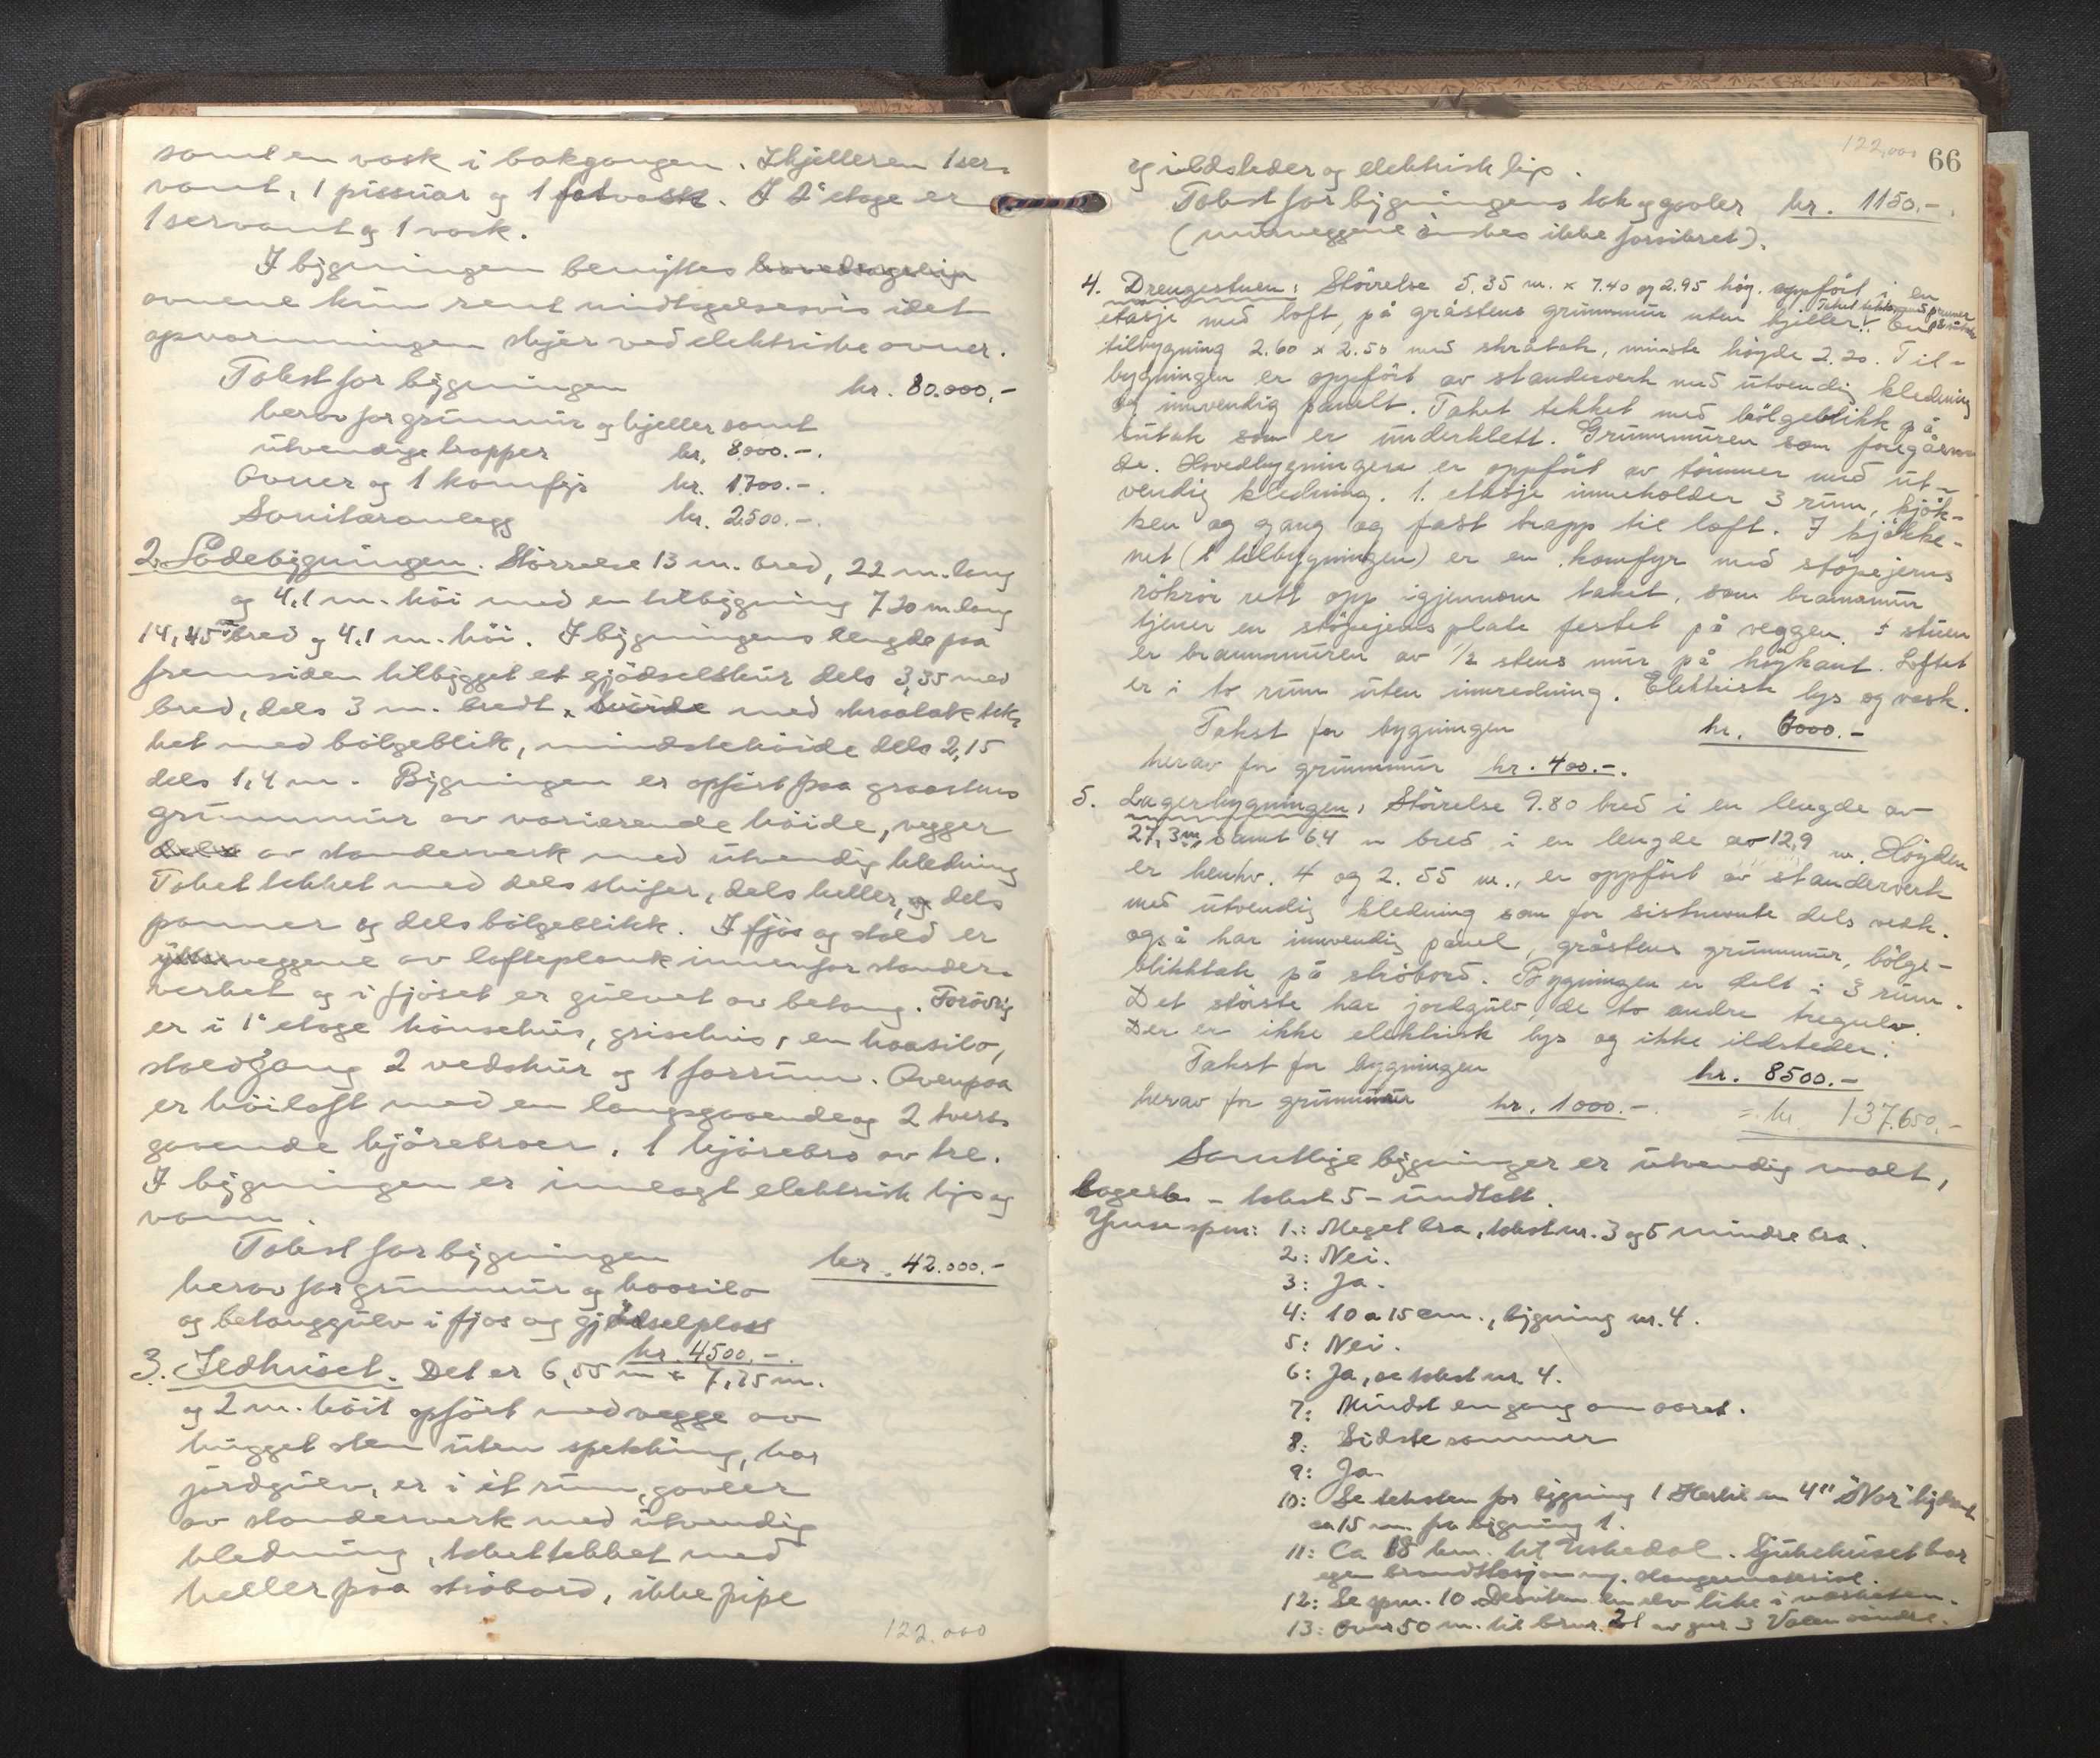 samt en vask i bakgangen. I kjelleren 1 ser-
vant, 1 pissuar og 1 fatvask. I 2' etage er
1 servant og 1 vask.
I bygningen benyttes hovedsagelig
ovnene kun rent undtagelsesvis idet
opvarmningen skjer ved elektriske ovner.
Takst for bygningen kr. 80.000,-
herav for grunnmur og kjeller samt
utvendige trapper kr. 8000.-.
Ovner og 1 komfyr kr. 1700.-.
Sanitæranlegg kr. 2500.-.
2. Lödebygningen. Störrelse 13 m. bred, 22 m. lang
og 4,1 m. höi med en tilbygning 7.20 m. lang
14,45 m bred og 4,1 m. höi. I bygningens lengde paa
fremsiden tilbygget et gjödselskur dels 3,35 med
bred, dels 3 m. bredt, med skraatak tek-
ket med bölgeblik, mindstehöide dels 2,15
dels 1,4 m. Bygningen er opfört paa graastens
grunnmur av varierende höide, vegger
dels av standerverk med utvendig kledning
Taket tekket med dels skifer, dels heller, og dels
panner og dels bölgeblikk. I fjös og stald er
ytterveggene av lafteplank innenfor stander-
verket og i fjöset er gulvet av betong. Forövrig
er i 1' etage hönsehus, grisehus, en haasilo,
staldgang 2 vedskur og 1 forrum. Ovenpaa
er höiloft med en langsgaaende og 2 tvers-
gaaende kjörebroer. 1 kjörebro av tre.
I bygningen er innlagt elektrisk lys og
vann.
Takst for bygningen kr. 42.000.-
herav for grunnmur og haasilo
og betonggulv i fjös og gjödselplass
kr. 4500.-.
3. Ildhuset. Det er 6,55 m x 7,75 m.
og 2 m. höit opfört med vegge av
hugget sten uten spekking, har
jordgulv, er i et rum, gavler
av standerverk med utvendig
kledning, taket tekket med
heller paa sköbord, ikke pipe
122.000
122,000 66
og ildsteder og elektrisk lys.
Takst for bygningens tak og gavler kr. 1150.-.
(murveggene önskes ikke forsikret).
4. Drengestuen: Störrelse 5.35 m. x 7.40 og 2.95 höy. oppfört i en
Taket tekket med panner på sutak
etasje med loft, på gråstens grunnmur uten kjeller. En
tilbygning 2.60 x 2.50 med skråtak, minste höyde 2.20. Til-
bygningen er oppfört av standerverk med utvendig kledning
og innvendig panelt. Taket tekket med bölgeblikk på
sutak som er underklett. Grunnmuren som foregåen-
de. Hovedbygningen er oppfört av tömmer med ut-
vendig kledning. 1. etasje inneholder 3 rum, kjök-
ken og gang og fast trapp til loft. I kjökke-
net (i tilbygningen) er en komfyr med stöpejerns
rökrör rett opp igjennom taket, som brannmur
tjener en stöpejerns plate festet på veggen. I stuen
er brannmuren av 1/2 stens mur på höykant. Loftet
er i to rum uten innredning. Elektrisk lys og vask.
Takst for bygningen kr. 6000.-
herav for grunnmur kr. 400.-.
5. Lagerbygningen: Störrelse 9.80 bred i en lengde av
27,3 m, samt 6.4 m bred i en lengde av 12,9 m. Höyden
er henhv. 4 og 2.55 m., er oppfört av standerverk
med utvendig kledning som for sistnevnte dels vedk.
også har innvendig panel, gråstens grunnmur, bölge-
blikktak på ströbord. Bygningen er delt i 3 rum.
Det störste har jordgulv, de to andre tregulv.
Der er ikke elektrisk lys og ikke ildsteder.
Takst for bygningen kr. 8500.-
herav for grunnmur kr. 1000.-. = kr. 137.650.-
Samtlige bygninger er utvendig malt,
lagerb. - takst 5 - undtatt.
spm: 1.: Meget bra, takst nr. 3 og 5 mindre bra.
2: Nei.
3: Ja.
4: 10 a 15 cm., bygning nr. 4.
5: Nei.
6: Ja, se takst nr. 4.
7: Mindst en gang om aaret.
8: Sidste sommer
9: Ja
10: Se teksten for bygning 1 Hertil en 4" "Nor" hydrant
ca 15 m. fra bygning 1.
11: Ca 18 km. til Uskedal. Sjukehuset har
egen brandstasjon slangemateriel.
12: Se spm. 10 Desuten en elv like i nærheten.
13: Over 50 m. til brnr. 21 av gnr 3 Valen